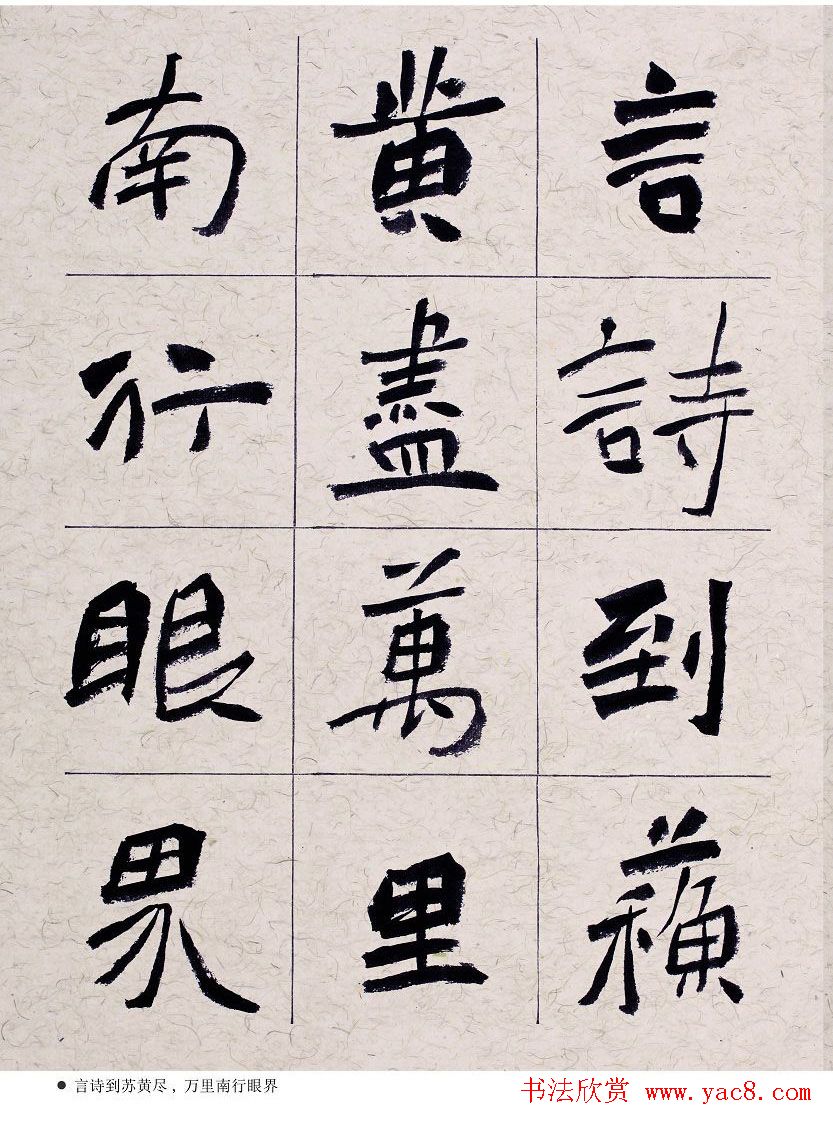 言詩到蘇
黄盡萬里
南行眼界
● 言诗到苏黄尽，万里南行眼界
书法欣赏 www.yac8.com